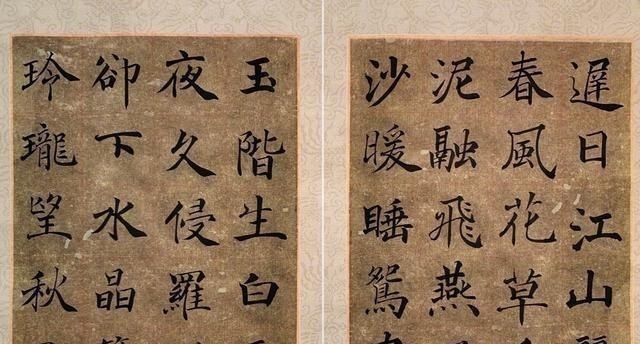 遲日江山
春風花草
泥融飛燕
沙暖睡鴛
玉階生白
夜久侵羅
卻下水晶
玲瓏望秋